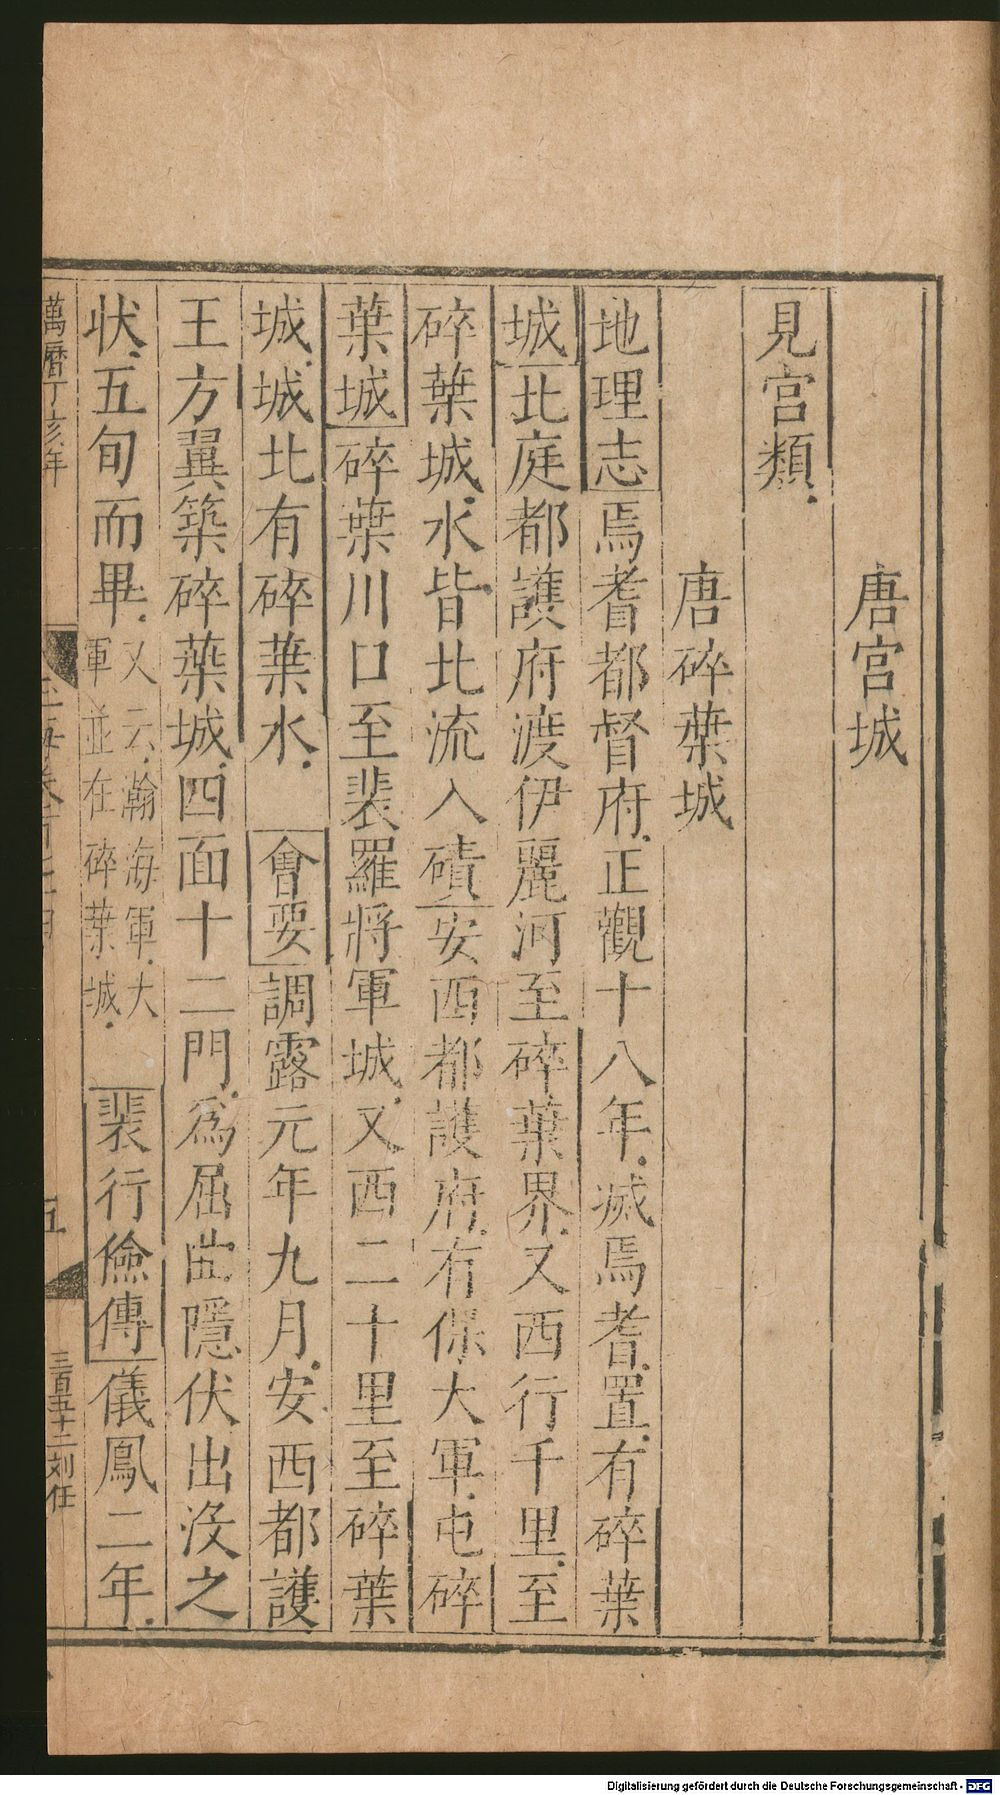 唐宫城
見宫類
唐碎葉城
地理志焉耆都督府正觀十八年滅焉耆置有碎葉
城北庭都護府渡伊麗河至碎葉界又西行千里至
碎葉城水皆北流入磧安西都護府有保大軍屯碎
葉城碎葉川口至裴羅將軍城又西二十里至碎葉
城城北有碎葉水 會要調露元年九月安西都護
王方翼築碎葉城四面十二門爲屈曲隱伏出没之
状五旬而畢又云瀚海軍大軍並在碎葉城 裴行儉傳儀鳳二年
萬曆丁亥年
五
三百五十二刘任
Digitalisierung gefördert durch die Deutsche Forschungsgemeinschaft - DFG